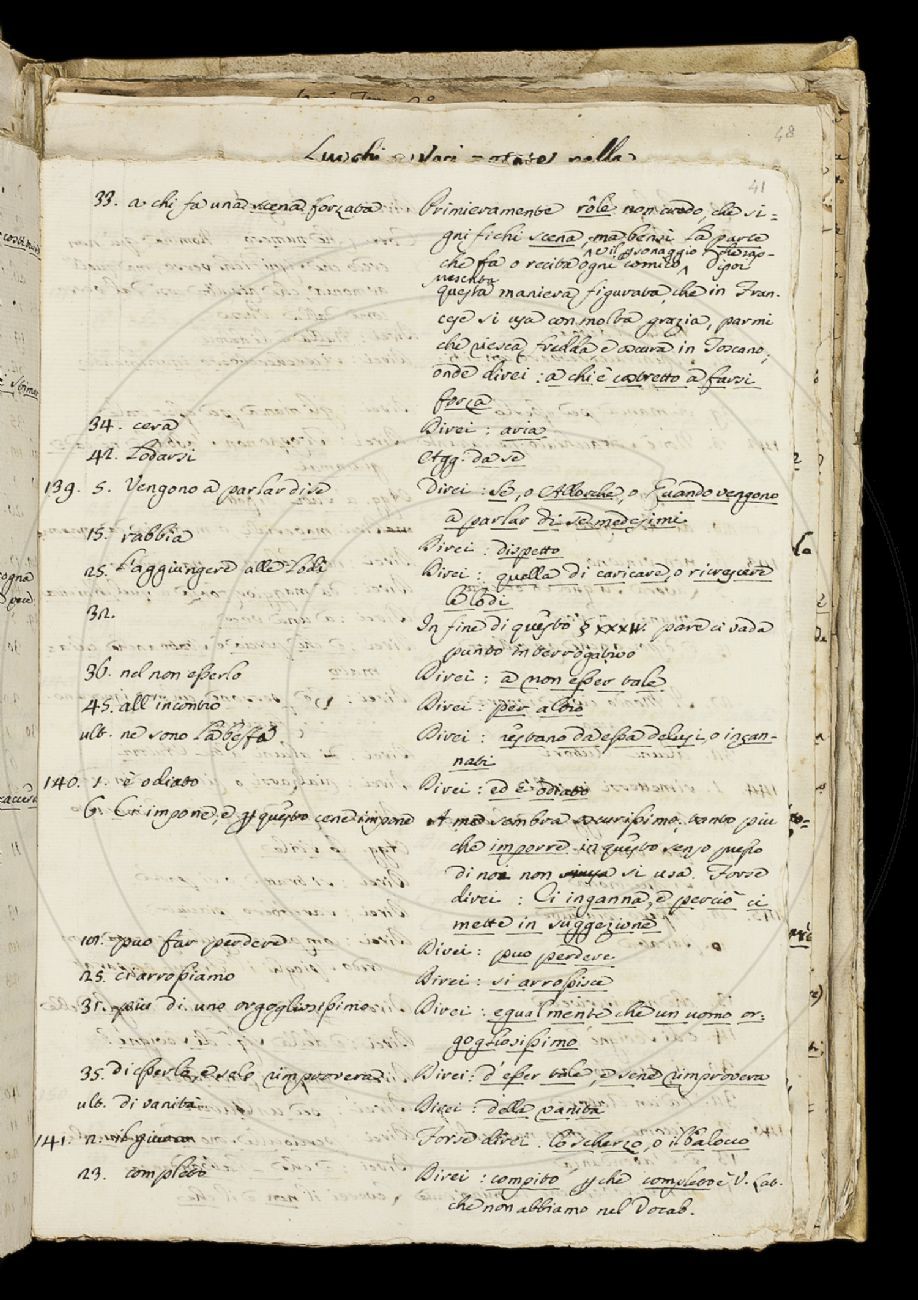 48
41
33. a chi fa una scena forzata
Primieramente rôle non credo, che si=
gnifichi scena, ma bensì la parte
che fa o recita ogni comico, Dipoi
o il personaggio che rap-
presenta
questa maniera figurata, che in Fran-
cese si usa con molta grazia, parmi
che riesca fredda e oscura in Toscano;
onde direi: a chi è costretto a farsi
forza
34. cera
Direi: aria
42. Lodarsi
Agg. da se
139. 5. Vengono a parlar di se
Direi: Se, o Allorche, o Quando vengono
a parlar di se medesimi
15. rabbia
Direi: dispetto
25. L'aggiungere alle Lodi
Direi: quella di caricare, o ricrescere
le lodi
32.
In fine di questo § XXXIV. pare ci vada
punto interrogativo
36. nel non esserlo
Direi: a non esser tale
45. all'incontro
Direi: per altro
ult. ne sono la beffa
Direi: restano da essa delusi, o ingan-
nati
140. 1. è odiato
Direi: ed È odiato
6. Ci impone, e p questo cene impone
A me sembra oscurissimo, tanto più
che imporre in questo senso presso
di noi non si usa. Forse
direi: Ci inganna, e perciò ci
mette in suggezione
può far perdere
Direi: può perdere
25. ci arrossiamo
Direi: si arrossisce
31. più di uno orgogliosissimo
Direi: egualmente che un uomo or-
gogliosissimo
35. di esserlo, e selo rimprovera
Direi: d'esser tale, e sene rimprovera
ult. di vanità
Direi: della vanità
141. 2. il giuoco
Forse direi: lo scherzo, o il balocco
23. completo
Direi: compito p che completo è V. Lat.
che non abbiamo nel Vocab.